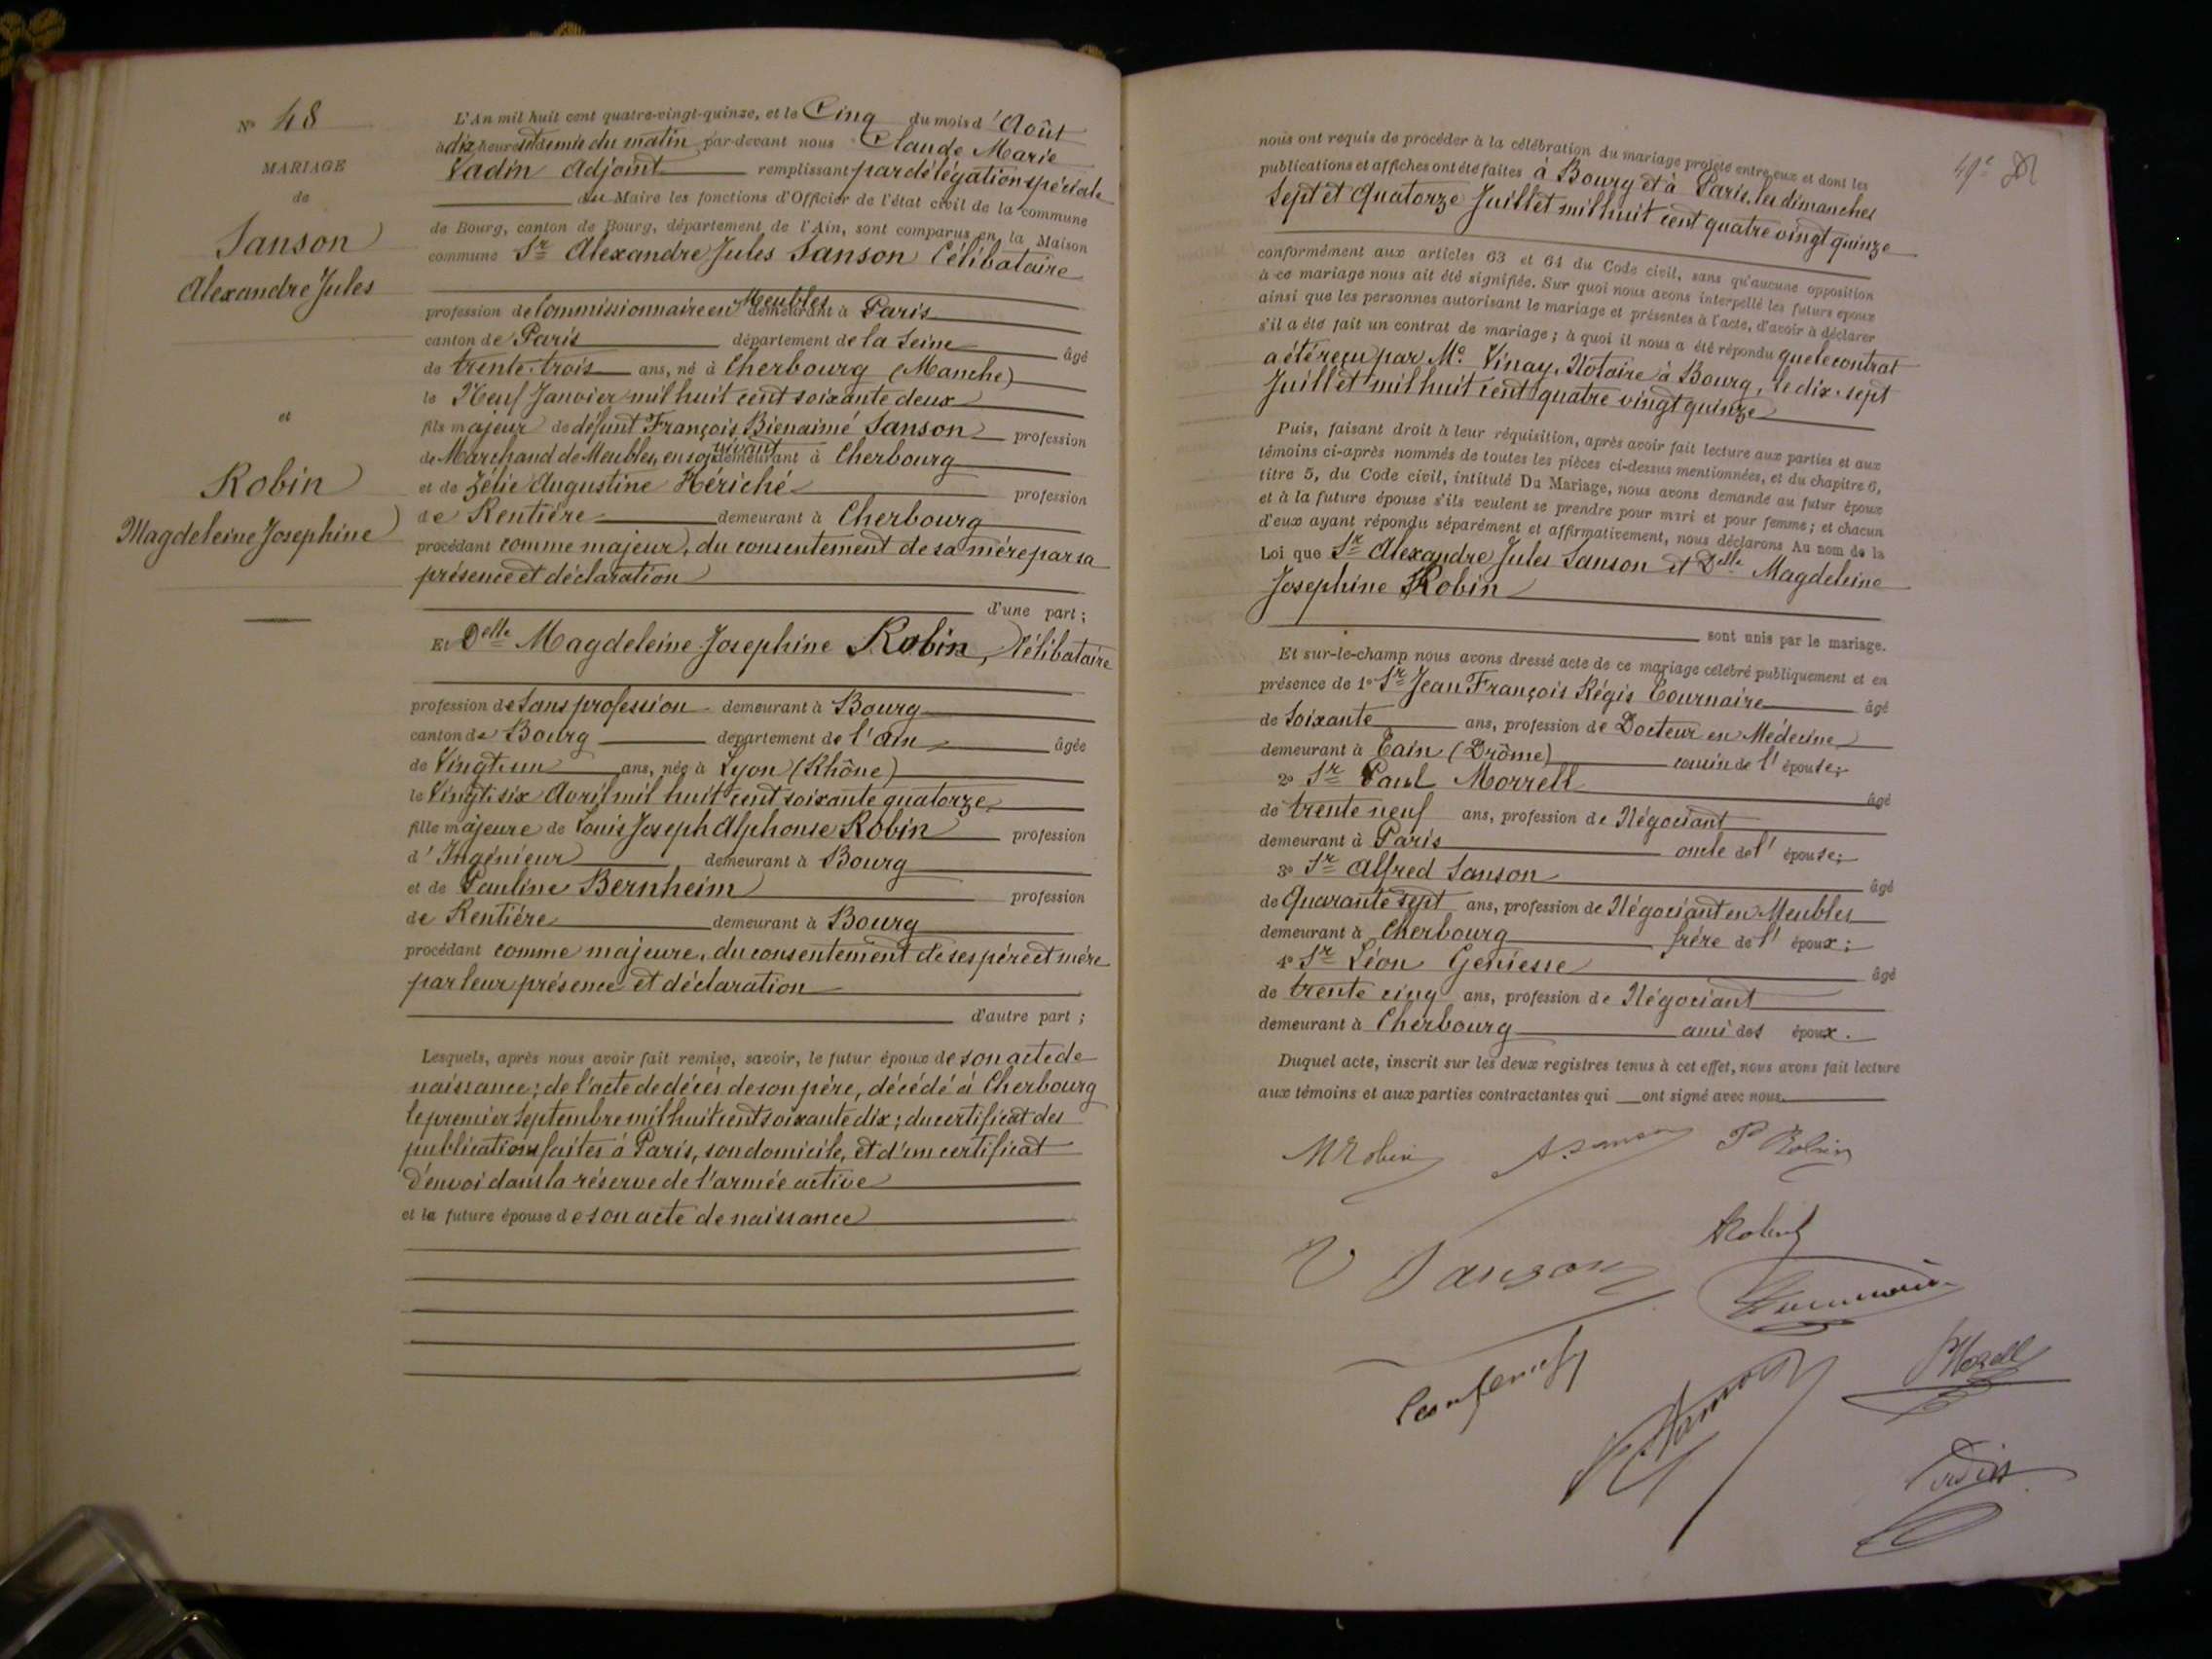 N° 48
MARIAGE
de
Sanson
Alexandre Jules
et
Robin
Magdeleine Josephine
L'An mil huit cent quatre-vingt-quinze, et le Cinq du mois d'Août
à dix heures et demie du matin par-devant nous Claude Marie
Vadin Adjoint remplissant par délégation spéciale
du Maire les fonctions d'Officier de l'état civil de la commune
de Bourg, canton de Bourg, département de l'Ain, sont comparus en la Maison
commune Sr Alexandre Jules Sanson Célibataire
profession de Commissionnaire en Meubles demeurant à Paris
canton de Paris département de la Seine âgé
de trente-trois ans, né à Cherbourg (Manche)
le Neuf Janvier mil huit cent soixante deux
fils majeur de défunt François Bienaimé Sanson profession
de Marchand de Meubles, en son vivant demeurant à Cherbourg
et de Zélie Augustine Hériché profession
de Rentiére demeurant à Cherbourg
procédant comme majeur, du consentement de sa mére par sa
présence et déclaration
d'une part ;
Et Delle Magdeleine Josephine Robin, Célibataire
profession de Sans profession demeurant à Bourg
canton de Bourg département de l'Ain âgée
de Vingt-un ans, née à Lyon (Rhône)
le Vingt-six Avril mil huit cent soixante quatorze
fille majeure de Louis Joseph Alphonse Robin profession
d'Ingénieur demeurant à Bourg
et de Pauline Bernheim profession
de Rentiére demeurant à Bourg
procédant comme majeure, du consentement de ses pére et mére
par leur présence et déclaration
d'autre part ;
Lesquels, après nous avoir fait remise, savoir, le futur époux de son acte de
naissance ; de l'acte de décès de son pére, décédé à Cherbourg
le premier Septembre mil huit cent soixante dix ; du certificat des
publications faites à Paris, son domicile, et d'un certificat
d'envoi dans la réserve de l'armée active
et la future épouse de son acte de naissance
nous ont requis de procéder à la célébration du mariage projeté entre eux et dont les
publications et affiches ont été faites à Bourg et à Paris, les dimanches
Sept et Quatorze Juillet mil huit cent quatre vingt quinze
conformément aux articles 63 et 64 du Code civil, sans qu'aucune opposition
à ce mariage nous ait été signifiée. Sur quoi nous avons interpellé les futurs époux
ainsi que les personnes autorisant le mariage et présentes à l'acte, d'avoir à déclarer
s'il a été fait un contrat de mariage ; à quoi il nous a été répondu que le contrat
a été reçu par Me Vinay, Notaire à Bourg, le dix-sept
Juillet mil huit cent quatre vingt quinze
Puis, faisant droit à leur réquisition, après avoir fait lecture aux parties et aux
témoins ci-après nommés de toutes les pièces ci-dessus mentionnées, et du chapitre 6,
titre 5, du Code civil, intitulé Du Mariage, nous avons demandé au futur époux
et à la future épouse s'ils veulent se prendre pour mari et pour femme ; et chacun
d'eux ayant répondu séparément et affirmativement, nous déclarons Au nom de la
Loi que Sr Alexandre Jules Sanson et Delle Magdeleine
Josephine Robin
sont unis par le mariage.
Et sur-le-champ nous avons dressé acte de ce mariage célébré publiquement et en
présence de 1° Sr Jean François Régis Tournaire âgé
de Soixante ans, profession de Docteur en Médecine
demeurant à Tain (Drôme) cousin de l'épouse ;
2° Sr Paul Morrell âgé
de trente neuf ans, profession de Négociant
demeurant à Paris oncle de l'épouse ;
3° Sr Alfred Sanson âgé
de Quarante sept ans, profession de Négociant en Meubles
demeurant à Cherbourg frére de l'époux ;
4° Sr Léon Geniesse âgé
de trente cinq ans, profession de Négociant
demeurant à Cherbourg ami des époux.
Duquel acte, inscrit sur les deux registres tenus à cet effet, nous avons fait lecture
aux témoins et aux parties contractantes qui ont signé avec nous.
M Robin A. Sanson P Robin
V Sanson
ARobin
Tournaire
PMorell
Vadin